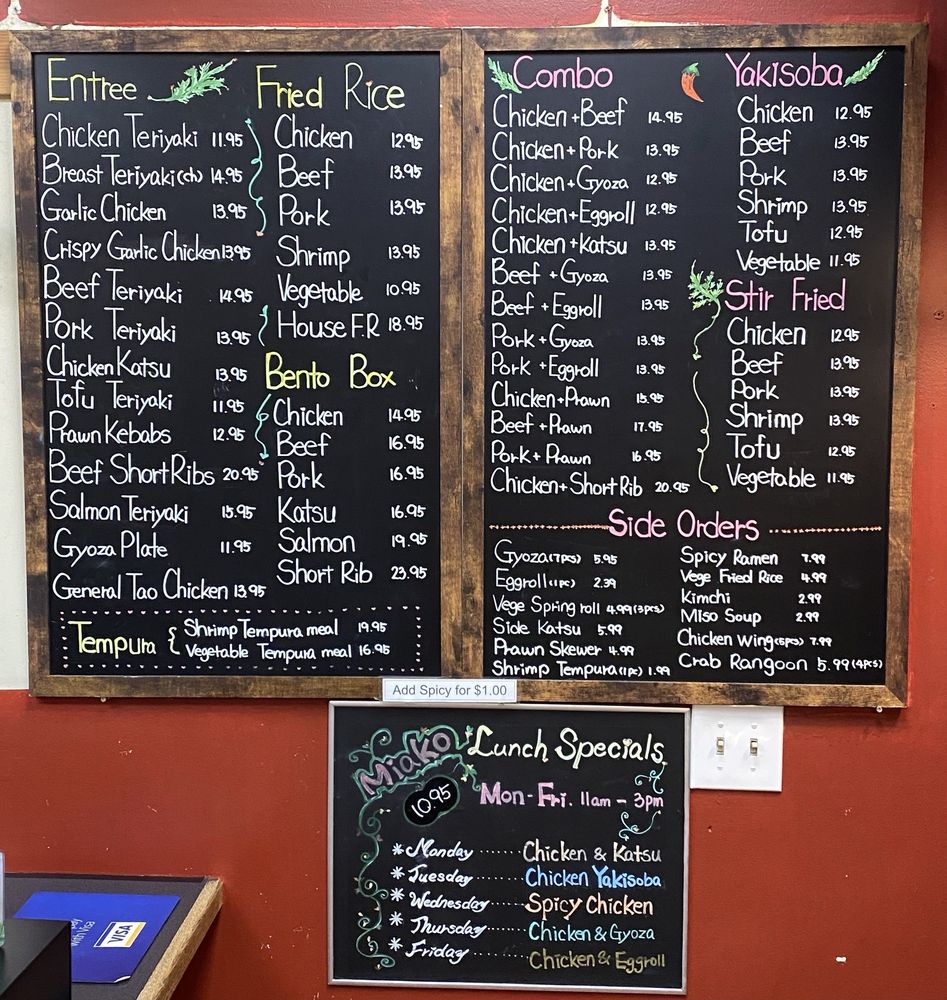 Entree
Chicken Teriyaki 11.95
Breast Teriyaki (ch) 14.95
Garlic Chicken 13.95
Crispy Garlic Chicken 13.95
Beef Teriyaki 14.95
Pork Teriyaki 13.95
Chicken Katsu 13.95
Tofu Teriyaki 11.95
Prawn Kebabs 12.95
Beef Short Ribs 20.95
Salmon Teriyaki 15.95
Gyoza Plate 11.95
General Tao Chicken 13.95
Fried Rice
Chicken 12.95
Beef 13.95
Pork 13.95
Shrimp 13.95
Vegetable 10.95
House F.R 18.95
Bento Box
Chicken 14.95
Beef 16.95
Pork 16.95
Katsu 16.95
Salmon 19.95
Short Rib 23.95
Tempura { Shrimp Tempura meal 19.95
Vegetable Tempura meal 16.95
Combo
Chicken + Beef 14.95
Chicken + Pork 13.95
Chicken + Gyoza 12.95
Chicken + Eggroll 12.95
Chicken + Katsu 13.95
Beef + Gyoza 13.95
Beef + Eggroll 13.95
Pork + Gyoza 13.95
Pork + Eggroll 13.95
Chicken + Prawn 15.95
Beef + Prawn 17.95
Pork + Prawn 16.95
Chicken + Short Rib 20.95
Yakisoba
Chicken 12.95
Beef 13.95
Pork 13.95
Shrimp 13.95
Tofu 12.95
Vegetable 11.95
Stir Fried
Chicken 12.95
Beef 13.95
Pork 13.95
Shrimp 13.95
Tofu 12.95
Vegetable 11.95
Side Orders
Gyoza (7pcs) 5.95
Eggroll (1pc) 2.39
Vege Spring roll 4.99 (3pcs)
Side Katsu 5.99
Prawn Skewer 4.99
Shrimp Tempura (1pc) 1.99
Spicy Ramen 7.99
Vege Fried Rice 4.99
Kimchi 2.99
Miso Soup 2.99
Chicken Wing (5pcs) 7.99
Crab Rangoon 5.99 (4pcs)
Add Spicy for $1.00
Miako
10.95
Lunch Specials
Mon - Fri. 11am - 3pm
* Monday ...... Chicken & Katsu
* Tuesday ...... Chicken Yakisoba
* Wednesday ...... Spicy Chicken
* Thursday ...... Chicken & Gyoza
* Friday ...... Chicken & Eggroll
with Visa
VISA